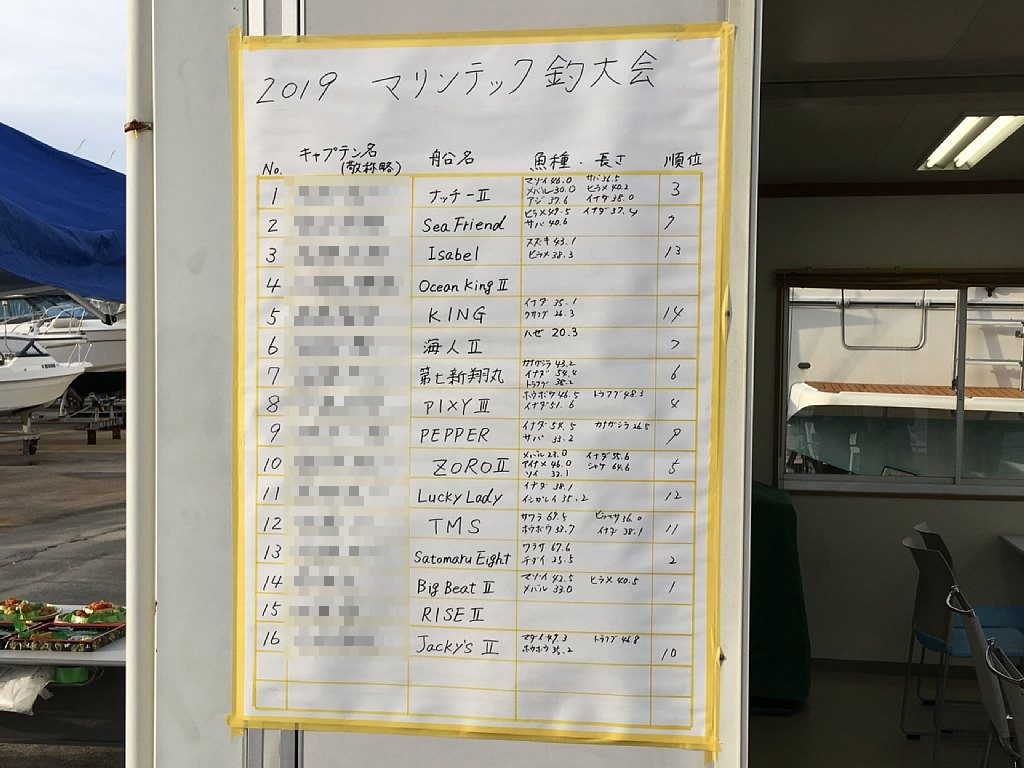 2019 マリンテック釣大会
No. キャプテン名 (敬称略) 船名 魚種・長さ 順位
1 ナッチーⅡ マゾイ46.0 サバ36.5 3
メバル30.0 ヒラメ40.2
アジ37.6 イナダ38.0
2 Sea Friend ヒラメ49.5 イナダ37.4
サバ40.6
3 Isabel スズキ43.1 13
ヒラメ38.3
4 Ocean King Ⅱ
5 KING イナダ35.1 14
26.3
6 海人Ⅱ ハゼ 20.3
7 第七新翔丸 カナガシラ43.2 6
イナダ54.4
トラフグ38.2
8 PIXYⅢ ホウボウ46.5 トラフグ48.3 4
イナダ51.6
9 PEPPER イナダ54.5 カナガシラ26.5 9
サバ33.2
10 ZOROⅡ メバル23.0 イナダ55.6 5
アイナメ46.0 シャケ64.6
ソイ32.1
11 Lucky Lady イナダ38.1 12
イシガレイ35.2
12 TMS サワラ69.5 11
ホウボウ33.7 イナダ38.1
13 Satomaru Eight ワラサ67.6 2
チダイ25.5
14 Big Beat Ⅱ マゾイ42.5 ヒラメ40.5 1
メバル33.0
15 RISEⅡ
16 Jacky's Ⅱ マダイ49.3 トラフグ46.8 10
ホウボウ35.2